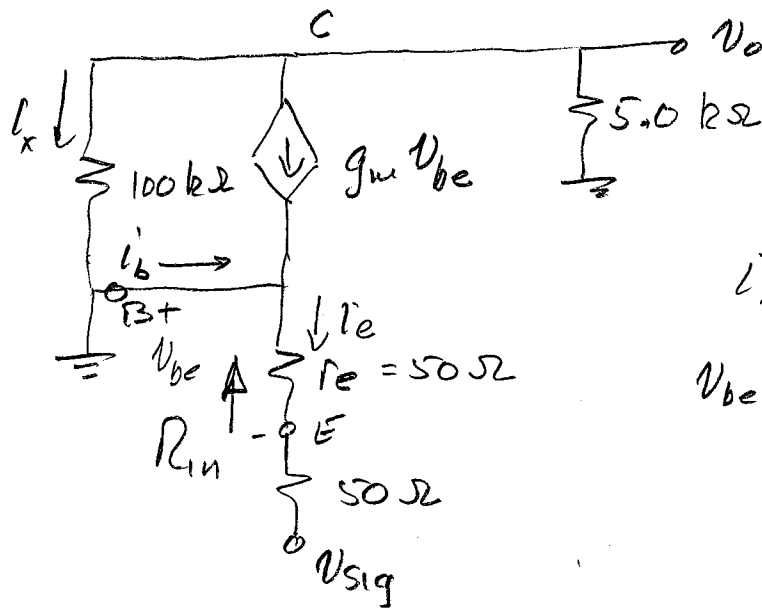 C
v_o
i_x
100 kΩ
g_m v_be
5.0 kΩ
i_b
B+
v_be
i_e
r_e = 50 Ω
R_in
- E
50 Ω
v_sig
i
v_be